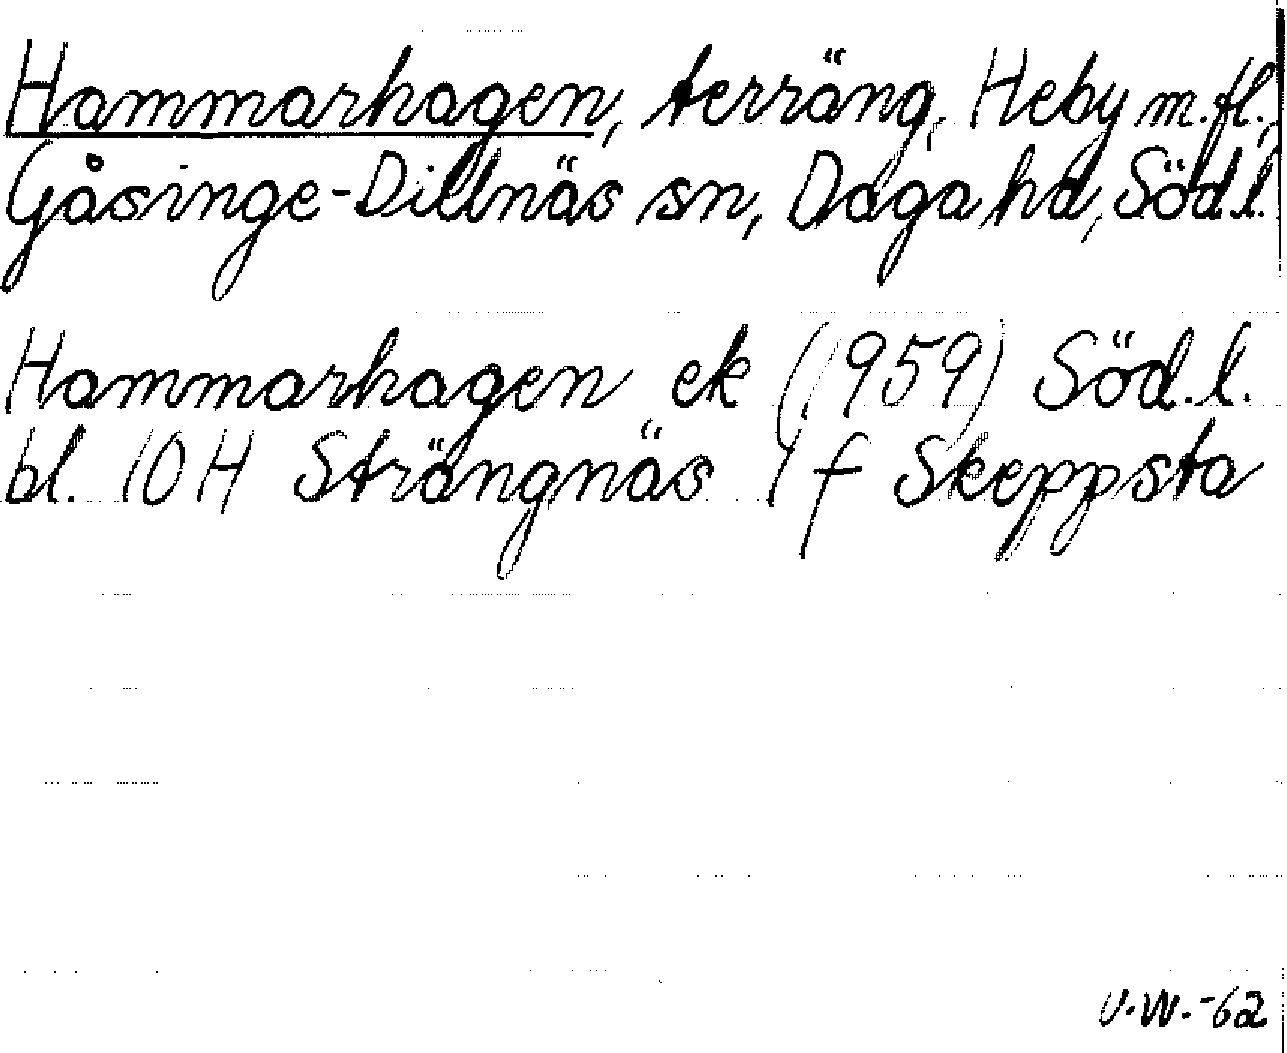 Hammarhagen, terräng, Heby m.fl.,
Gåsinge-Dillnäs sn, Daga hd, Söd.l.
Hammarhagen ek (1959) Söd.l.
bl. 10H Strängnäs 1 f Skeppsta
U.W.-62